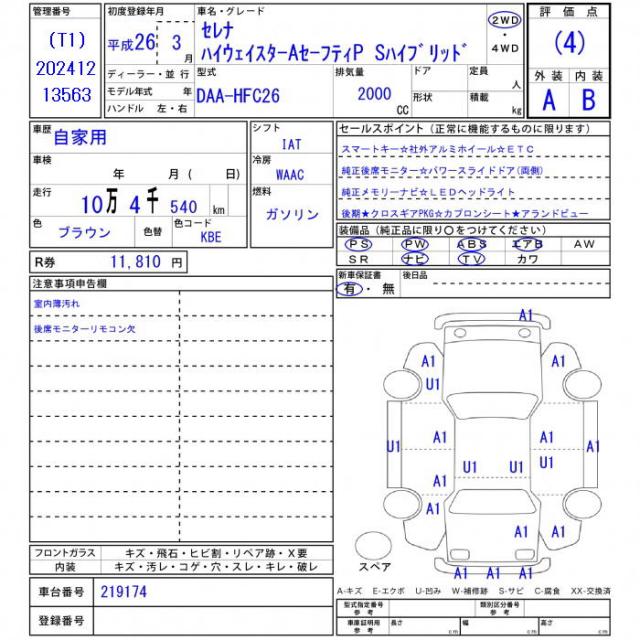 管理番号
(T1)
202412
13563
初度登録年月
平成26 3 月
ディーラー・並 行
モデル年式 年
ハンドル 左・右
車名・グレード
セレナ
ハイウェイスターAセーフティP Sハイブリッド
2WD
・
4WD
型式
DAA-HFC26
排気量
2000
CC
ドア
形状
定員
人
積載
kg
評 価 点
(4)
外 装 内 装
A B
車歴
自家用
車検
年 月 ( 日)
走行
10万 4千 540 km
色
ブラウン
色替
色コード
KBE
シフト
IAT
冷房
WAAC
燃料
ガソリン
R券 11,810 円
セールスポイント (正常に機能するものに限ります)
スマートキー☆社外アルミホイール☆ETC
純正後席モニター☆パワースライドドア(両側)
純正メモリーナビ☆LEDヘッドライト
後期★クロスギアPKG☆カプロンシート★アランドビュー
装備品 (純正品に限り○をつけてください)
PS PW ABS エアB AW
SR ナビ TV カワ
新車保証書
有・無
後日品
注意事項申告欄
室内薄汚れ
後席モニターリモコン欠
A1
A1 A1
U1
U1 A1 A1 U1
U1 U1 U1
A1 A1
A1 A1
A1 A1 A1
スペア
フロントガラス キズ・飛石・ヒビ割・リペア跡・X要
内装 キズ・汚レ・コゲ・穴・スレ・キレ・破レ
車台番号 219174
登録番号
A-キズ E-エクボ U-凹み W-補修跡 S-サビ C-腐食 XX-交換済
型式指定番号
参考
類別区分番号
参考
車庫証明用
参考
長さ cm 幅 cm 高さ cm